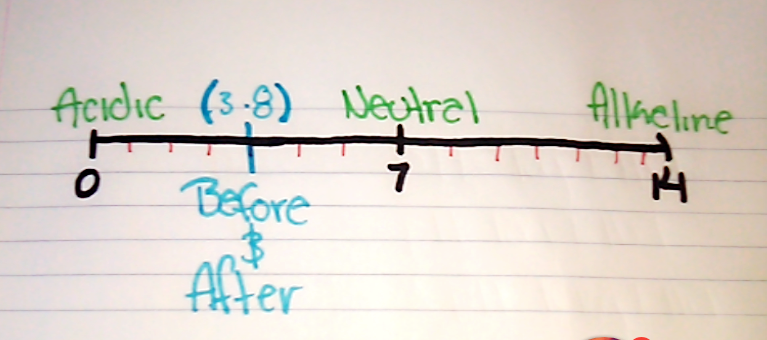 Acidic (3.8) Neutral Alkaline
0 7 14
Before
&
After